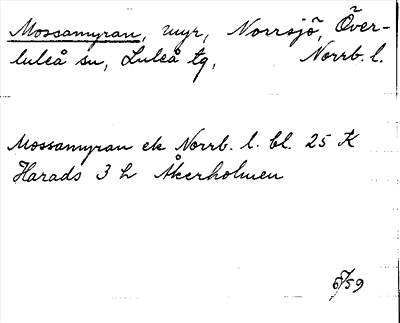 Mossamyran, myr, Norrsjö, Över-
luleå sn, Luleå tg, Norrb. l.
Mossamyran ek Norrb. l. bl. 25 K
Harads 3 h Åkerholmen
5/59